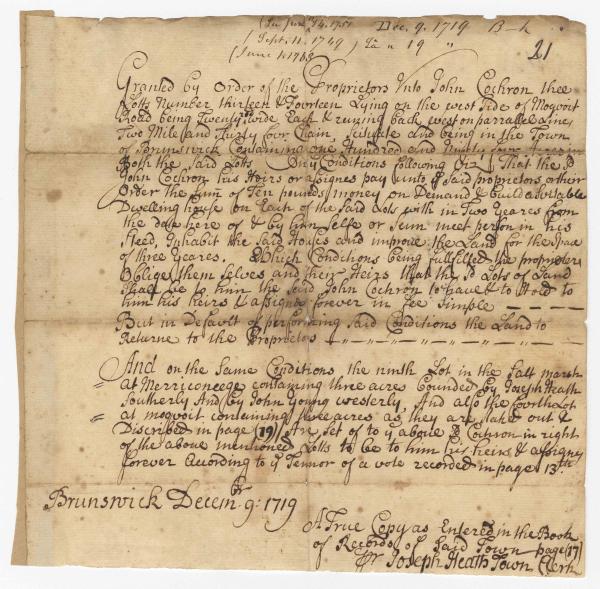 Dec. 9. 1719 B—k
(Sept. 11. 1749 ) 19 "
(June 1.
21
Granted by Order of the Proprietors Unto John Cochron thee
Lotts Number thirteen & Fourteen Lying on the west Sides of Moqvoit
Road being Twenty wide Each & runing back west on parralel Lines
Two Miles and Thirty four Chain, Scituate and being in the Town
of Brunswick Containing one Hundred and Ninty four acres in
Both the Said Lots On y Conditions following Viz That the sd
John Cochron his Heirs or assignes pay unto y Said proprietors or their
Order the Sum of Ten pounds money on Demand & build a Suitable
Dwelling house on Each of the Said Lots with in Two Yeares from
the date here of & by him Selfe or Sum meet person in his
Steed, Inhabit the Said Houses and improve the Land for the Space
of three Yeares. Which Conditions being fulfilled the propriators
Obliges them Selves and their Heirs that the sd Lots of Land
Shall be to him the said John Cochron to have & to Hold to
him his hairs & assigns forever in Fee Simple
But in Default of performing Said Conditions the Land to
Returne to the Proprietors
And on the Same Conditions the ninth Lot in the Salt marsh
at Merryconeege containing three acres Bounded by Joseph Heath
Southerly And by John Young westerly, And also the fourth Lot
at moqvoit containing five acres as they are Laked out &
Discribed in page (19) Are Set of to y above sd Cochron in right
of the above mentioned Lotts to be to him his heirs & assigns
forever According to y Tennor of a vote recorded in page 13th
Brunswick Decembr 9: 1719
A True Copy as Entered in the Book
of Records of Said Town page (17)
Pr Joseph Heath Town Clerk